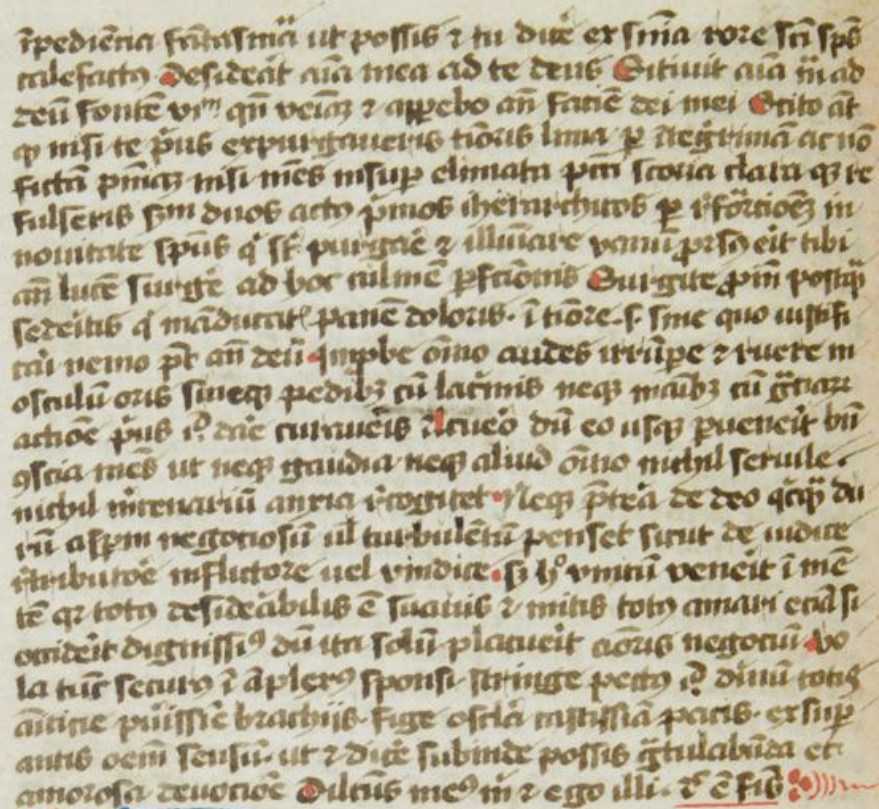 īpediēcia fātasmata ut possis ⁊ tu dice᷑ ex sūma rore sc̄i sp̄s
calefactꝰ Desideāt aīa mea ad te deus Sitiuit aīa m̄ ad
deū fontē viuū qn̄ veiaꝫ ⁊ apꝑebo an̄ faciē dei mei Scito at̄
ꝙ nisi te pͥus expurgaueris tiōris lima ꝑ legͥtimā ac nō
fictā pn̄iaꝫ nisi mēs insuꝑ elimata pctī scoria clara qꝫ re
fulseris scdm duos actꝰ pͥmos iherarchicos ꝑ rͤfōrcōeꝫ in
nouitate spūs qͥ st̄ purgāe ⁊ illuīare vanū ꝓrsꝰ eīt tibi
an̄ lucē surge᷑ ad hoc culmē ꝑfcōnis Surgite ꝓin postqͣ
sedeītis qͥ māducatͥ panē doloris · ī tiōre ·s· sine quo iustifi
cāi nemo pt̄ an̄ deū Improbe oīno audes irrūpe ⁊ ruere in
osculū oris siueqꝫ pedibꝫ cū lacͥmis neqꝫ māibꝫ cū gͣciaꝝ
actiōe pͥus dāe curaueīs Actueo᷑ dū eo usqꝫ ꝑueneīt bn̄
ꝯscia mēs ut neqꝫ gaudia neqꝫ aliud oīno nichil seruile ·
nichil mͤcenariū anxia rͤcogitet · Neqꝫ pͤtea᷑ de deo qͥcqͣ du
rū asꝑm negociosū ul turbulētū penset sicut de iudice
rͤtributoē inflictore uel vindice · sꝫ hͦ vnicū veneīt ī mē
tē qꝛ totꝰ desideābilis ē suauis ⁊ mitis totꝰ amari eciā si
occideīt dignissiꝰ dū ita solū placueīt aōris negociū Vo
la tūc securꝰ ī āplexꝰ sponsi · stringe pectꝰ diuīū totiꝰ
āicicie pͥuissīe brachijs · fige oscl̄a castissīa pacis · exsuꝑ
antis oēm sensū · ut ⁊ dice᷑ subinde possis gͣtulabūda et
amorosa deuocōe Dilc̄us meꝰ m̄ ⁊ ego illi · ē finis